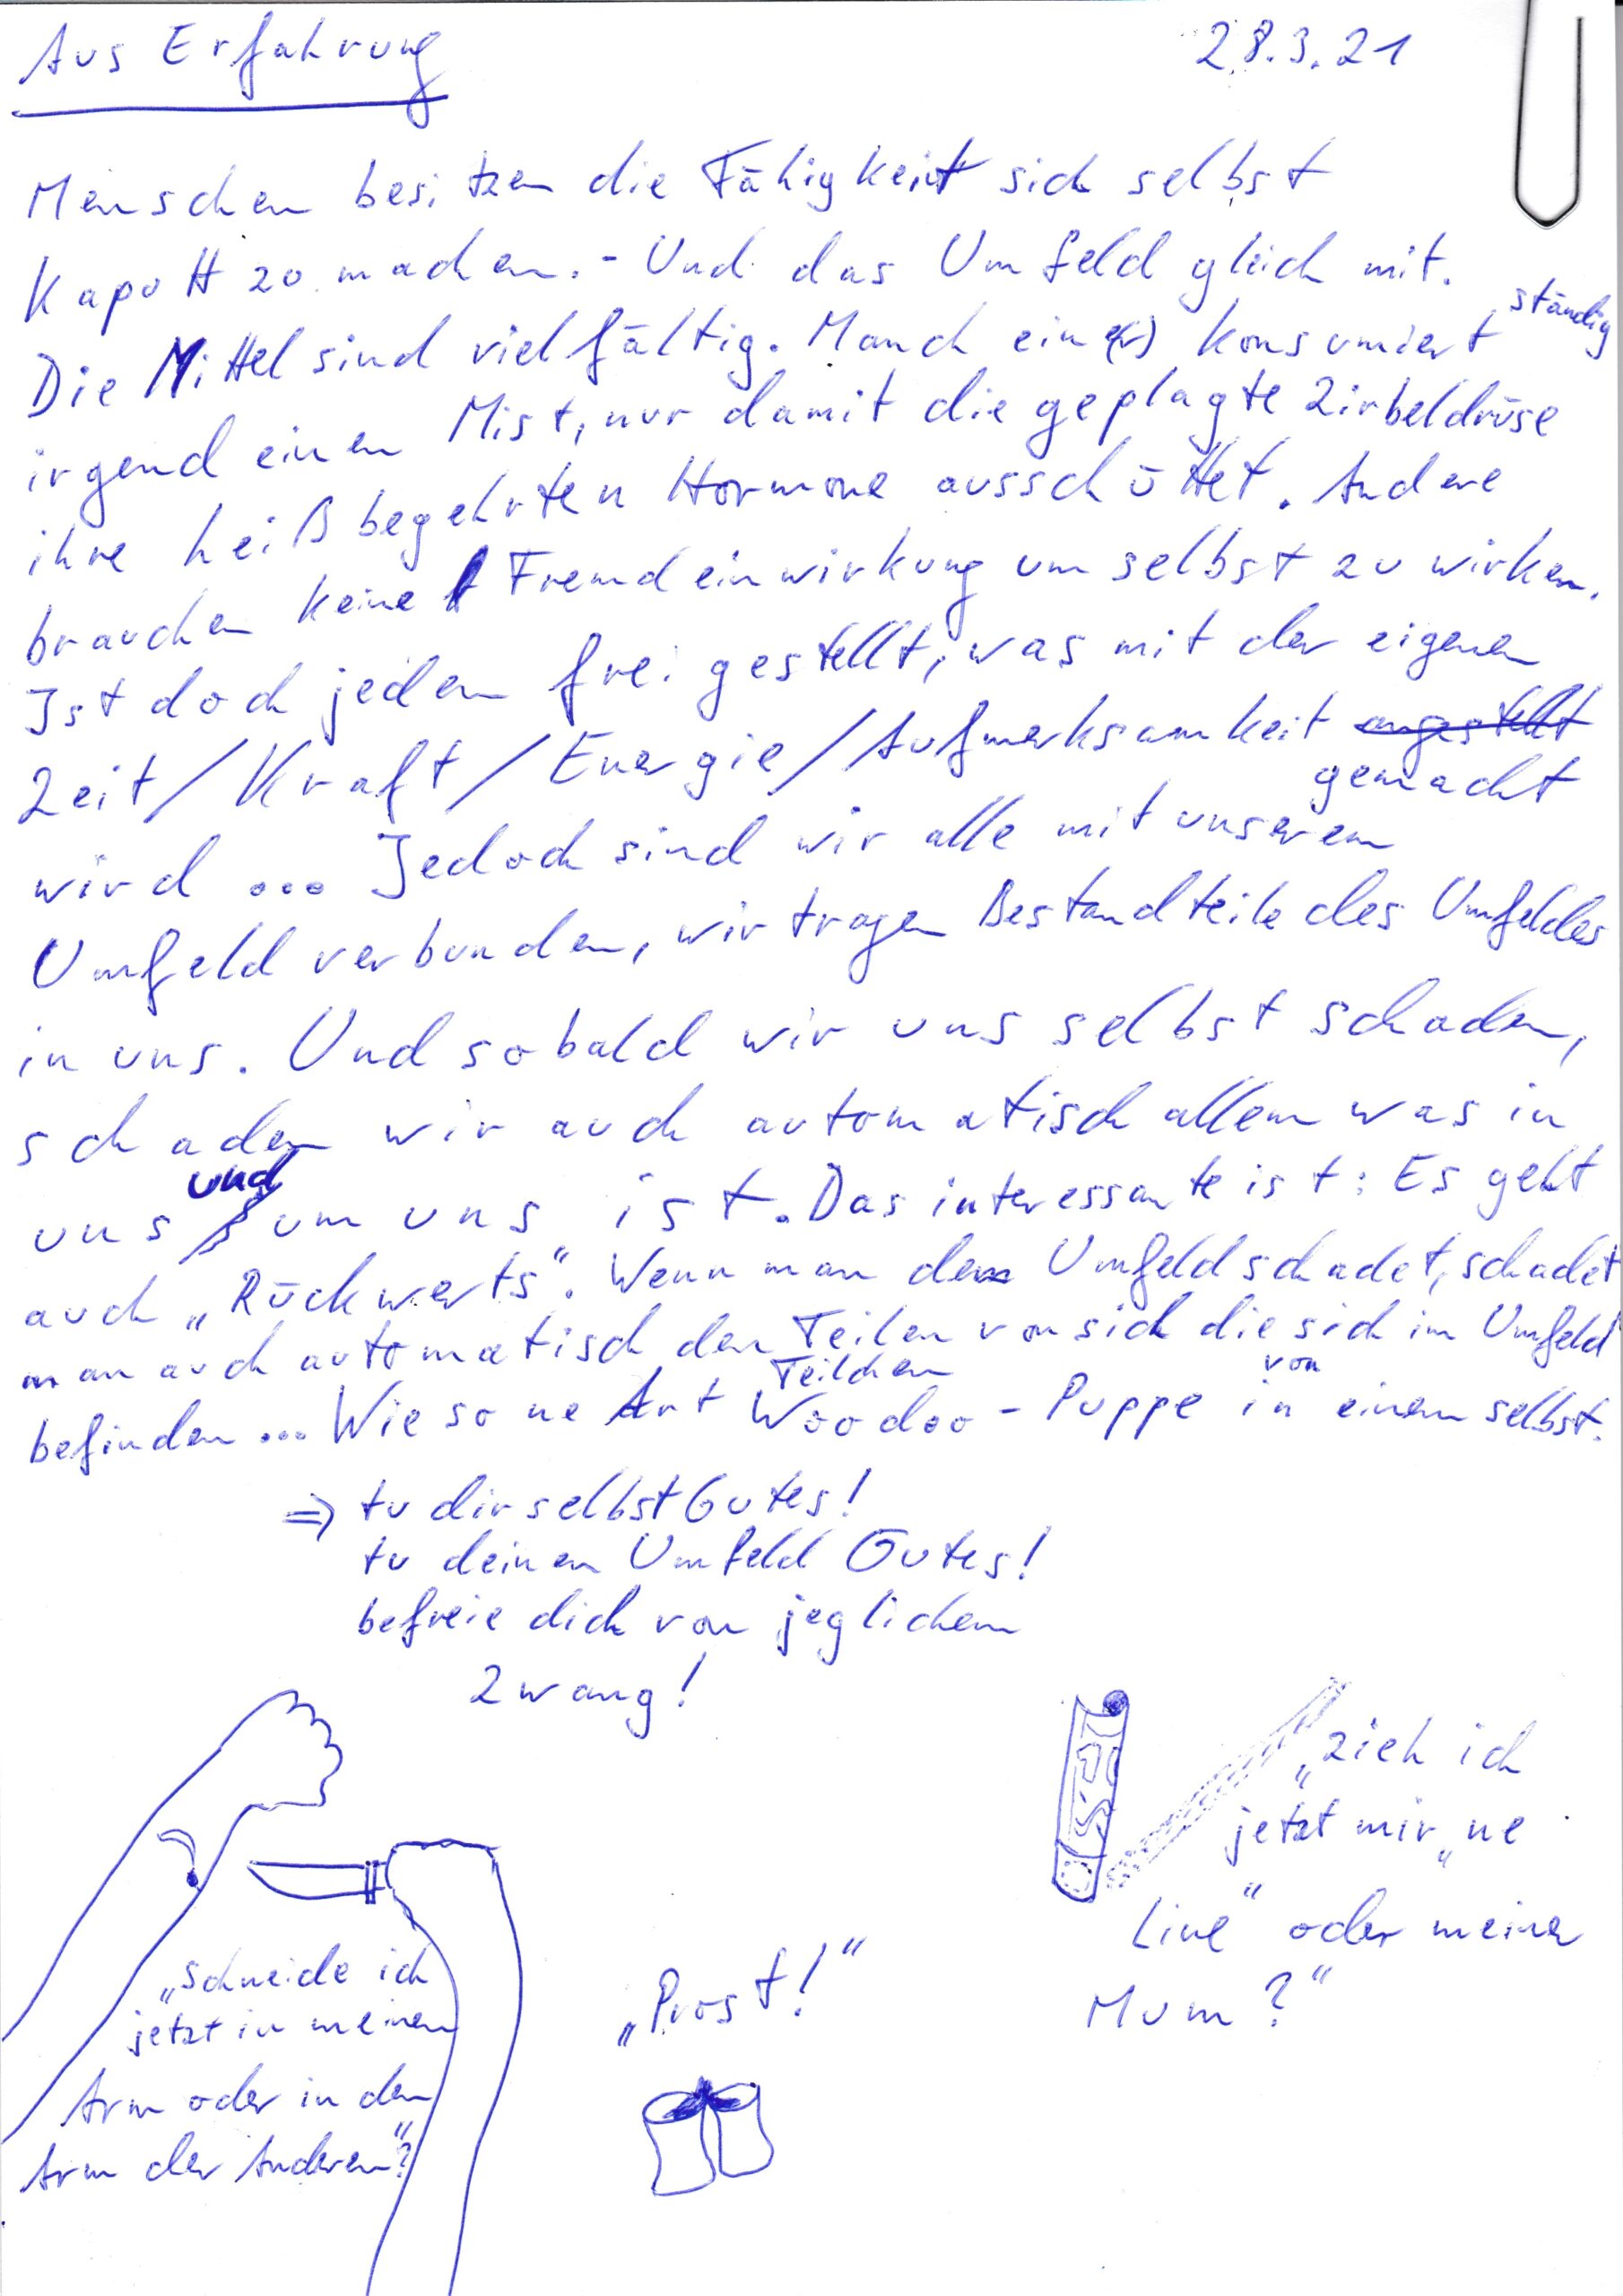 Aus Erfahrung
28.3.21
Menschen besitzen die Fähigkeit sich selbst
Kaputt zu machen. - Und das Umfeld gleich mit.
Die Mittel sind vielfältig. Manch eine(r) konsumiert ständig
irgend einen Mist, nur damit die geplagte Zirbeldrüse
ihre heiß begehrten Hormone ausschüttet. Andere
brauchen keine Fremdeinwirkung um selbst zu wirken.
Ist doch jedem frei gestellt, was mit der eigenen
Zeit/Kraft/Energie/Aufmerksamkeit angestellt
gemacht
wird ... Jedoch sind wir alle mit unserem
Umfeld verbunden, wir tragen Bestandteile des Umfeldes
in uns. Und sobald wir uns selbst schaden,
schaden wir auch automatisch allem was in
uns und um uns ist. Das interessante ist: Es geht
auch „Rückwerts". Wenn man dem Umfeld schadet, schadet
man auch automatisch den Teilen von sich die sich im Umfeld
befinden ... Wie so ne Art Woodoo-Puppe in einem selbst.
Teilchen von
⇒ tu dir selbst Gutes!
tu deinem Umfeld Gutes!
befreie dich von jeglichem
Zwang!
„Schneide ich
jetzt in meinen
Arm oder in den
Arm der Anderen"?
„Prost!"
„zieh ich
jetzt mir „ne
Line" oder meiner
Mum?"